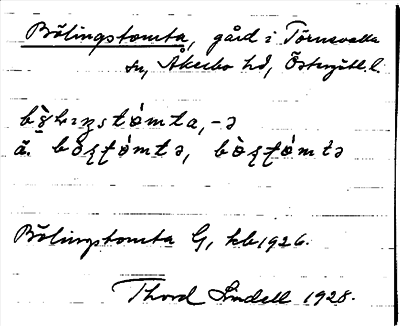 Bölingstomta, gård i Törnevalla
sn, Åkerbo hd, Östergötl. l.
bö̀lıŋstómta, -ə
ä. bö̀ʂʈómtə, bö̀ʂʈómtə
Bölingstomta G, kb 1926.
Thord Lindell 1928.